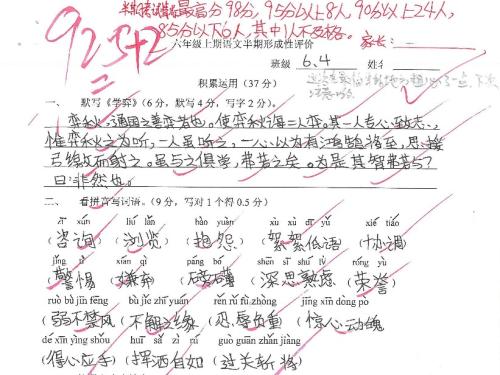 半期考试情况最高分98分,95分以上8人,90分以上24人,
85分以下6人,其中1人不及格。 家长:
92.5+2
六年级上期语文半期形成性评价
班级 6.4 姓名
积累运用(37分)
一、 默写《学弈》(6分,默写4分,写字2分)。
弈秋,通国之善弈者也。使弈秋诲二人弈。其一人专心致志,
惟弈秋之为听,一人虽听之,一心以为有鸿鹄将至,思援
弓缴而射之。虽与之俱学,弗若之矣。为是其智弗若与?
曰:非然也。
二、 看拼音写词语。(9分,写对1个得0.5分)
zī xún liú lǎn bào yuàn xù xù dī yǔ xié tiáo
(咨询) (浏览) (抱怨) (絮絮低语) (协调)
jǐng tì xián qì páng bó shēn sī shú lǜ róng yù
(警惕) (嫌弃) (磅礴) (深思熟虑) (荣誉)
ruò bù jīn fēng bù jiě zhī yuán rěn rǔ fù zhòng jīng xīn dòng pò
(弱不禁风) (不解之缘) (忍辱负重) (惊心动魄)
dé xīn yìng shǒu huī sǎ zì rú guò guān zhǎn jiàng
(得心应手) (挥洒自如) (过关斩将)